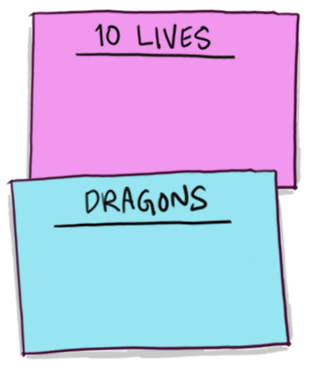 10 LIVES
DRAGONS